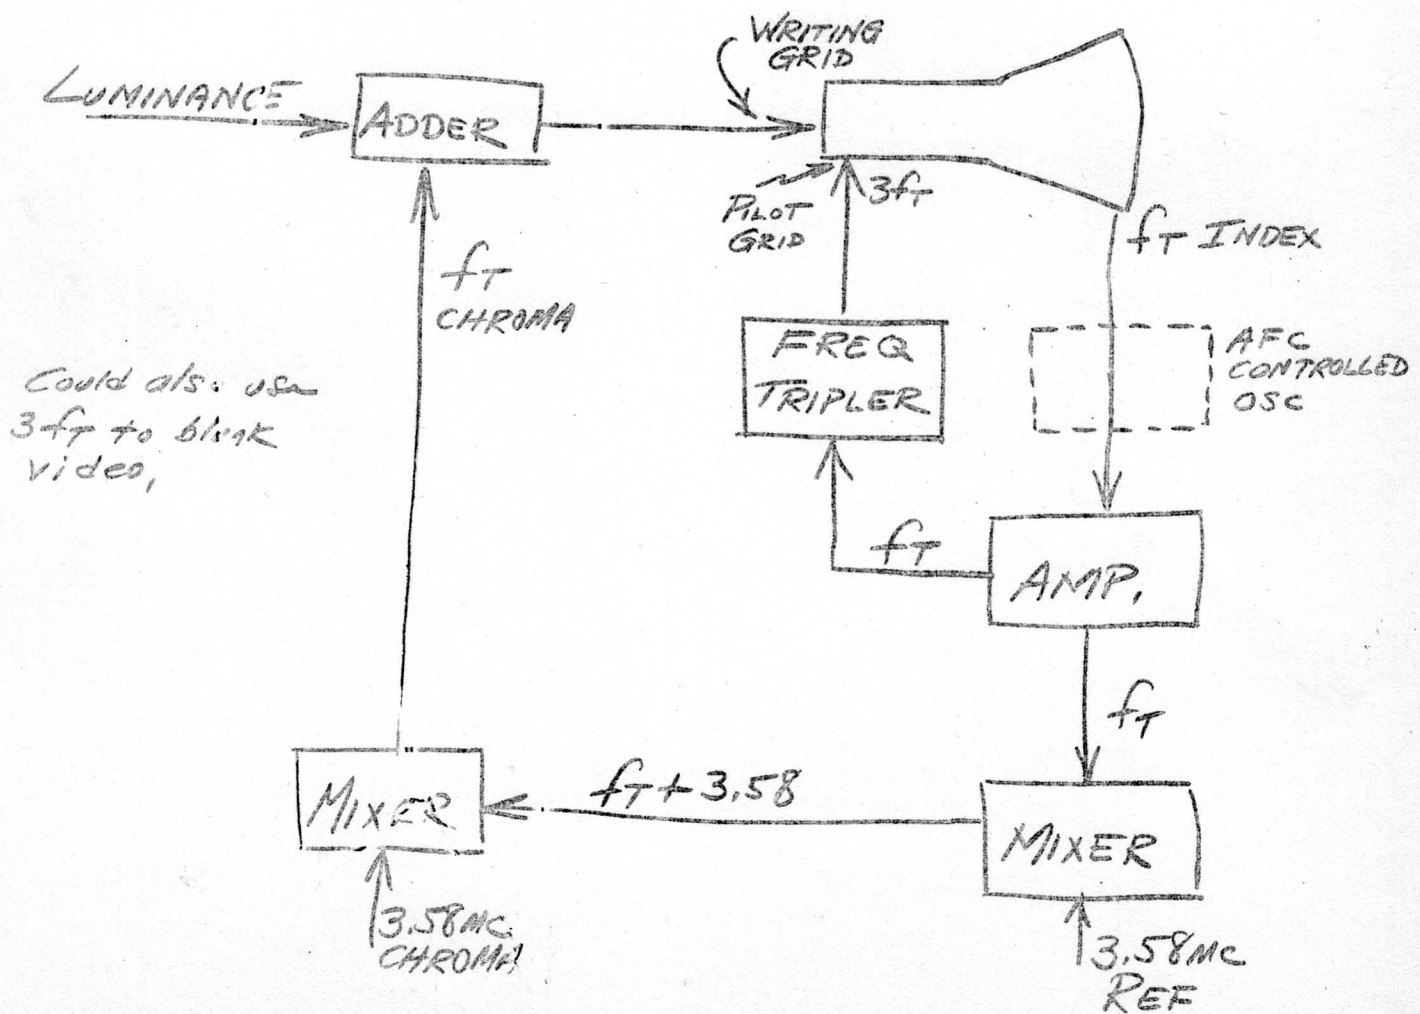 WRITING
GRID
LUMINANCE
ADDER
PILOT
GRID
3fT
fT INDEX
fT
CHROMA
FREQ
TRIPLER
AFC
CONTROLLED
OSC
Could also use
3fT to blank
video,
fT
AMP.
fT
MIXER
fT + 3.58
MIXER
3.58MC
CHROMA
3.58MC
REF